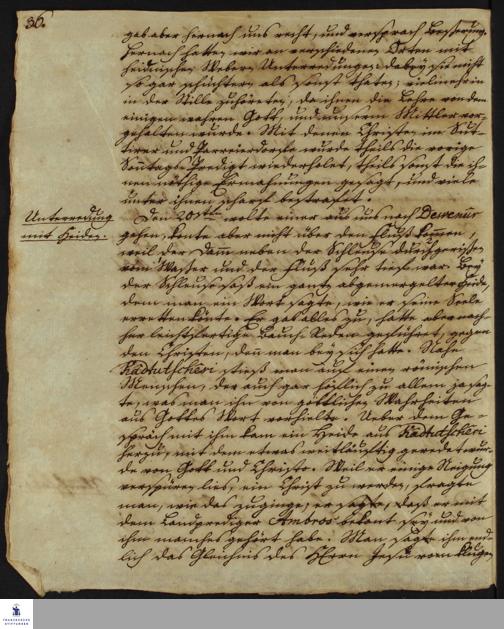 36.
gab aber hernach uns recht, und versprach Besserung.
Hernach hatten wir an verschiedenen Orten mit
heidnischen Webern Unterredungen, dabey sie nicht
so gar schüchtern als sonst thaten; vielmehr in
in der Stille zuhöreten, da ihnen die Lehre von dem
einigen wahren Gott, und unserm Mittler vor-
gehalten wurde. Mit denen Christen im
und wurde theils die vorige
Sontags-Predigt wiederholet, theils sonst die ih-
nen nöthige Ermahnungen gesagt, und viele
unter ihnen scharf bestrafft.
Unterredung
mit Heiden.
Den 20sten wolte einer aus uns nach Dewenur
gehen, konte aber nicht über den Fluß kommen,
weil der Damm neben der Schleuse durchgerissen
vom Wasser und der Fluß sehr tief war. Bey
der Schleuse saß ein gantz abgemergelter Heide,
dem man ein Wort sagte, wie er seine Seele
erretten könte. Er gab alles zu, hatte aber nach-
her leichtfertige Bauch-Reden geführet, gegen
den Christen, den man bey sich hatte. Nahe
Kadtutscheri stieß man auf einen römischen
Menschen, der auch gar höflich zu allem ja sag-
te, was man ihm von göttlichen Wahrheiten
aus Gottes Wort vorhielte. Ueber dem Ge-
spräch mit ihm kam ein Heide aus Kadtutscheri
herzu, mit dem etwas weitläuftig geredet wur-
de von Gott und Christo. Weil er einige Neigung
verspüren lies, ein Christ zu werden, fragte
man, wie das zuginge; er sagte, daß er mit
dem Landprediger Ambros bekant sey und von
ihm manches gehört habe. Man sagte ihm end-
lich das Gleichnis des HErrn Jesu vom klugen
FRANCKESCHE
STIFTUNGEN